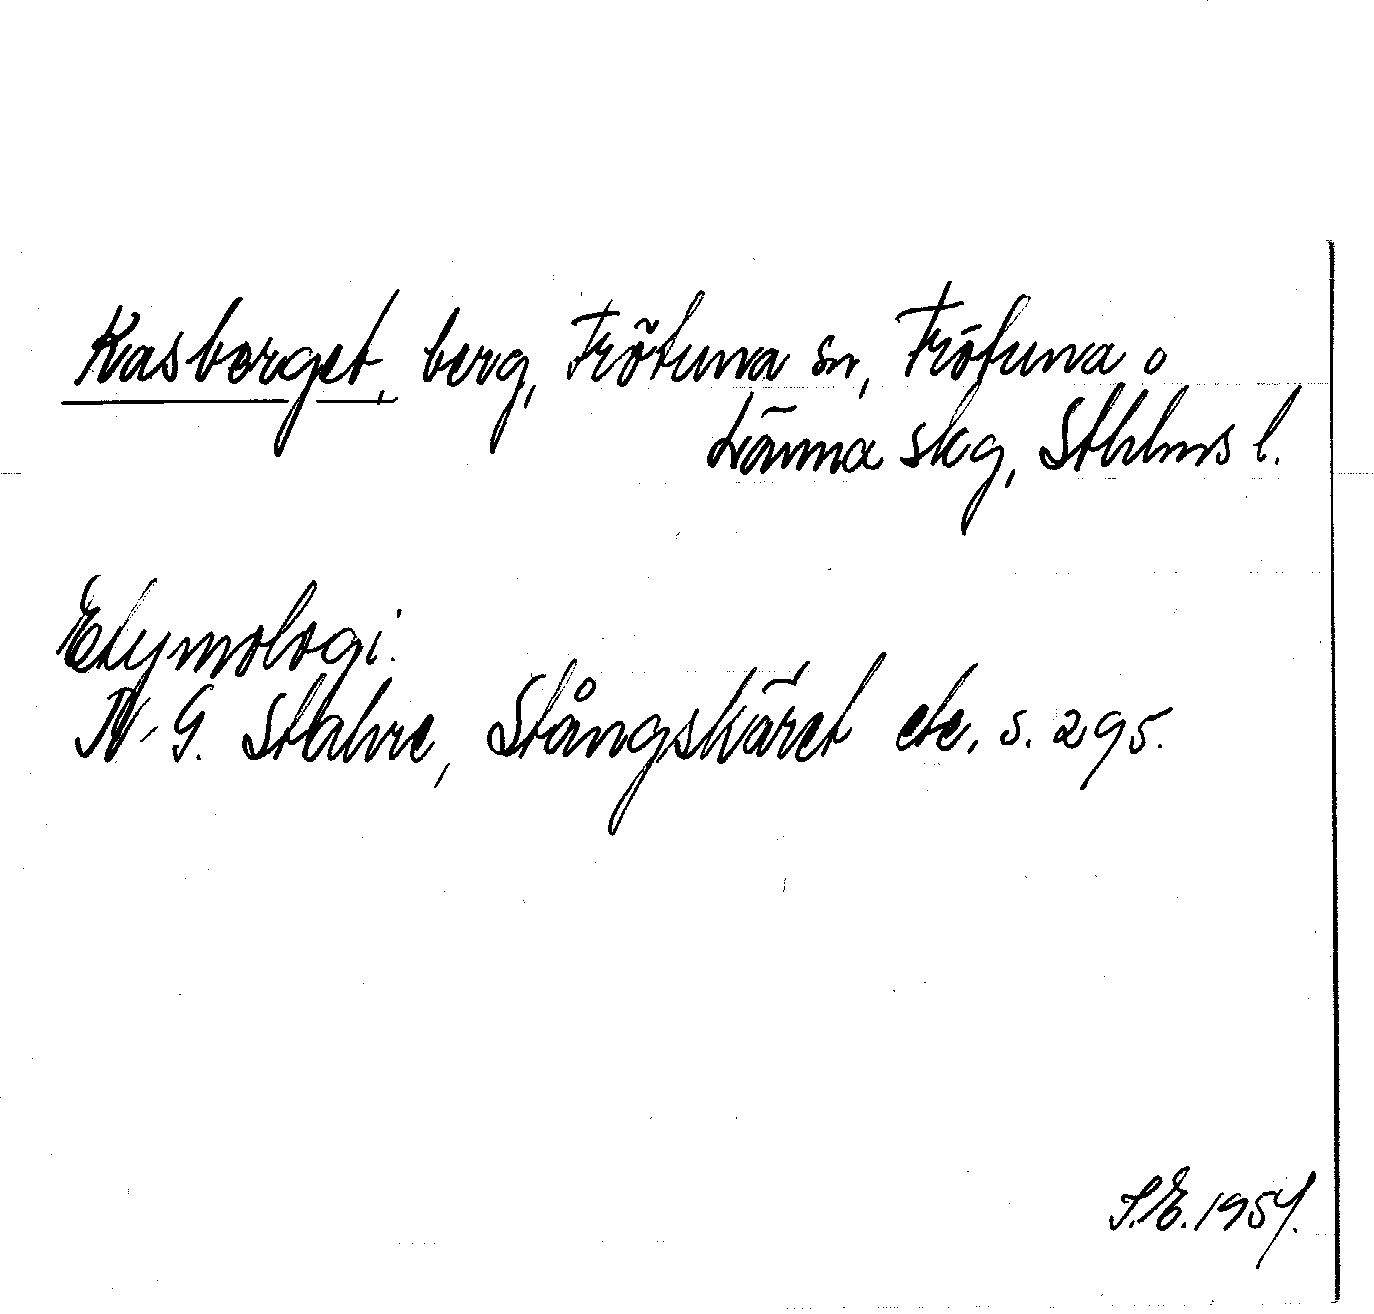 Kasberget, berg, Frötuna sn, Frötuna o
Länna skg, Sthlms l.
Etymologi.
N-G. Stahre, Stångskäret etc. s. 295.
S.E. 1954.